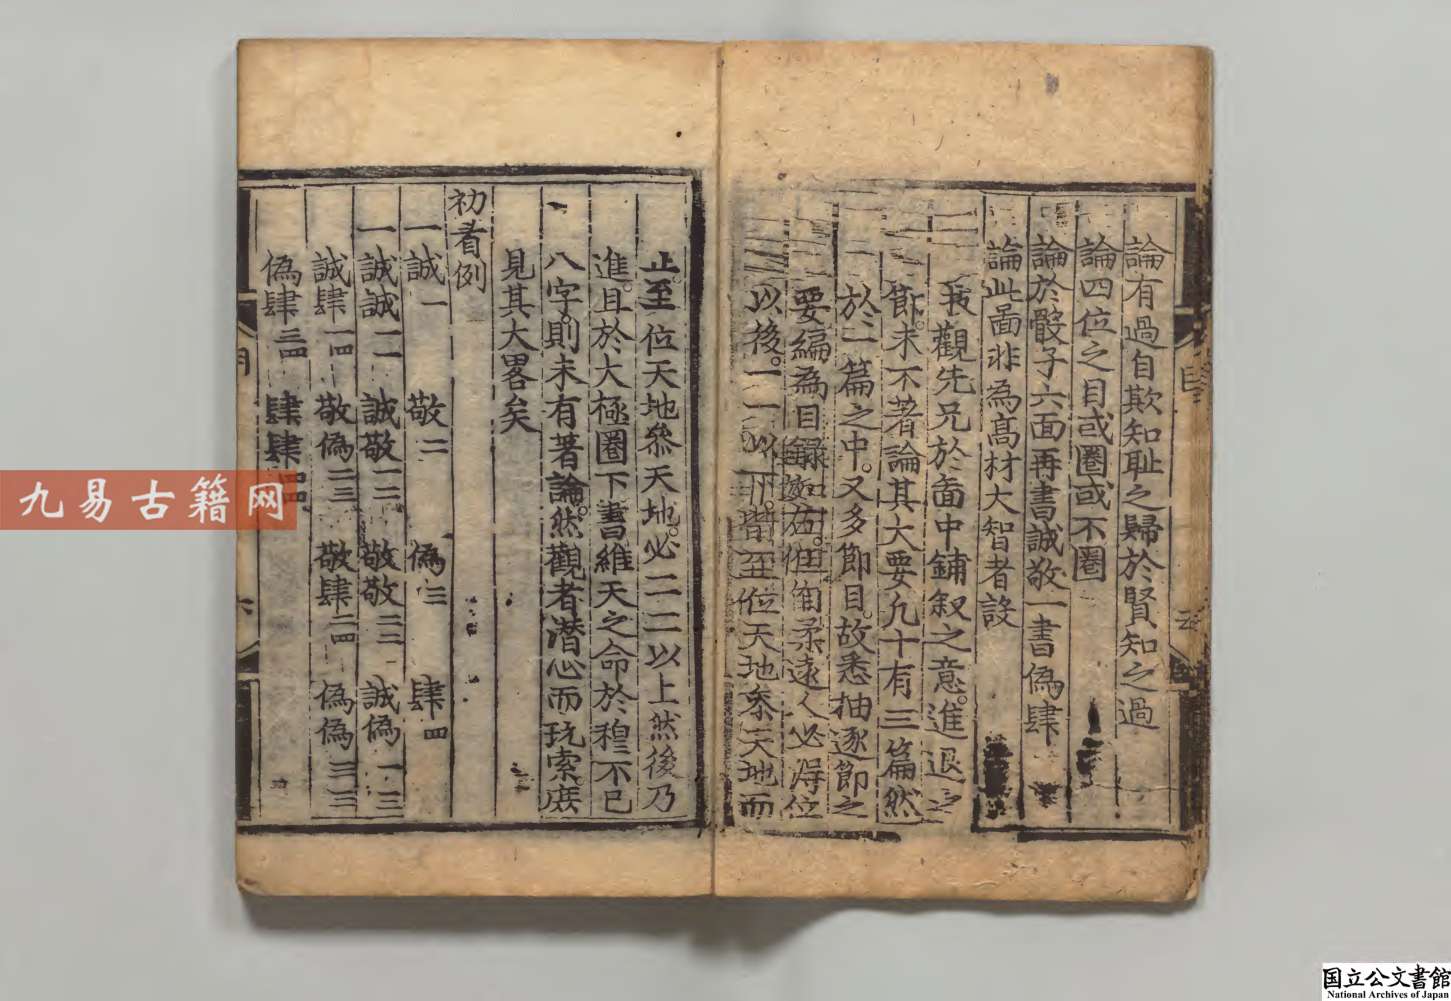 論有過自欺知耻之歸於賢知之過
論四位之目或圈或不圈
論於骰子六面再書誠敬一書偽肆
論此啚非為髙材大智者設
我觀先兄於啚中鋪叙之意進退之
節未不著論其大要九十有三篇然
於一篇之中又多節目故悉抽逐節之
要編為目録如右但自柔遠人必得位
以後一一以 皆至位天地叅天地而
止至位天地叅天地必二二以上然後乃
進且於大極圈下書維天之命於穆不已
八字則未有著論然觀者潜心而玩索庶
見其大畧矣
初看例
一誠一 敬二 偽三 肆四
一誠誠一一 誠敬一二 敬敬二二 誠偽一三
誠肆一四 敬偽二三 敬肆二四 偽偽三三
偽肆三四 肆肆四四
九易古籍网
国立公文書館
National Archives of Japan